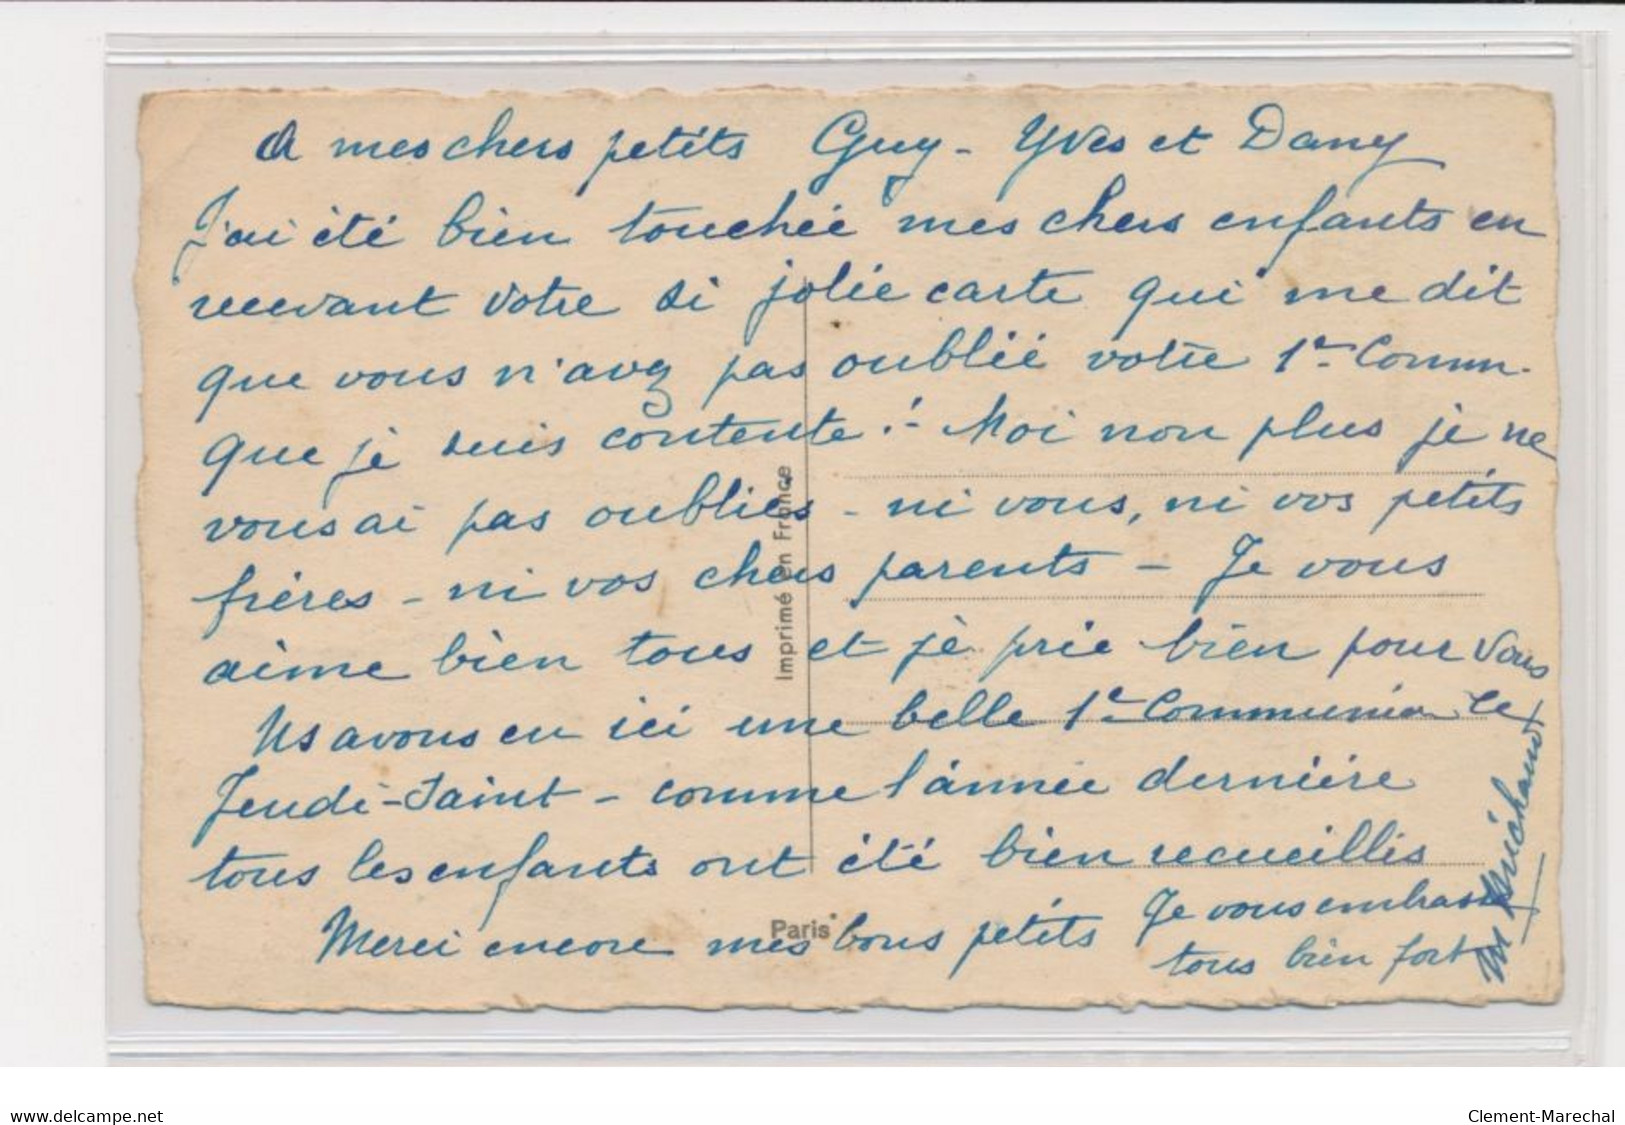 A mes chers petits Guy - Yves et Dany
J'ai été bien touchée mes chers enfants en
recevant votre si jolie carte qui me dit
que vous n'avez pas oublié votre 1e Comm.
que je suis contente ! - Moi non plus je ne
vous ai pas oubliés - ni vous, ni vos petits
frères - ni vos chers parents - Je vous
aime bien tous et je prie bien pour vous
Ns avons eu ici une belle 1e Communion le
Jeudi-Saint - comme l'année dernière
tous les enfants ont été bien recueillis
Merci encore mes bons petits Je vous embrasse
tous bien fort
Michaud
Imprimé en France
Paris
www.delcampe.net
Clement-Marechal